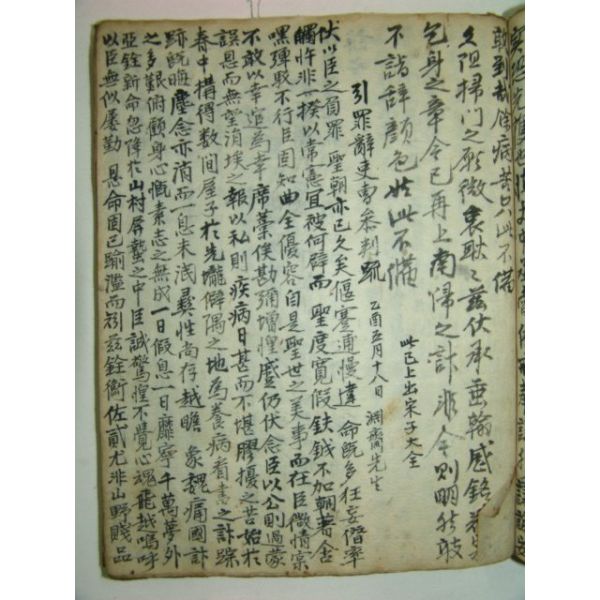 乾到哉保病苦只此不備
久阻掃門之願微衷耿〻茲伏承垂翰感銘
乞身之章今已再上南歸之計非今則明然敢
不詣辞顔色如此不備
此已上出宋子大全
引罪辭吏曹參判䟽 乙酉五月十八日 渊齋先生
伏以臣之負罪聖朝亦已久矣偃蹇逋慢違命旣多狂妄僭率
觸忤非一揆以常憲宜被何辟而聖度寬假鈇鉞不加輒著含
嘿殫駁不行臣固知曲全優容自是聖世之美事而在臣微情案
不敢以幸逭爲幸席藁俟勘彌增惶蹙仍伏念臣以公則過蒙
誤恩而無望涓埃之報以私則疾病日甚而不堪膠擾之苦始於
春中搆得数間屋子於先壠僻隅之地為養病看書之計踪
跡旣晦塵念亦消而一息未泯彛性尙存越瞻象魏痛國計
之多艱俯顧身心慨素志之無成一日假息一日靡寧千萬夢外
亞銓新命忽降於山村屏蟄之中臣誠驚惶不覺心魂飛越嗚呼
以臣無似屡勤恩命固已踰濫而矧茲銓衡佐貳尤非山野賤品